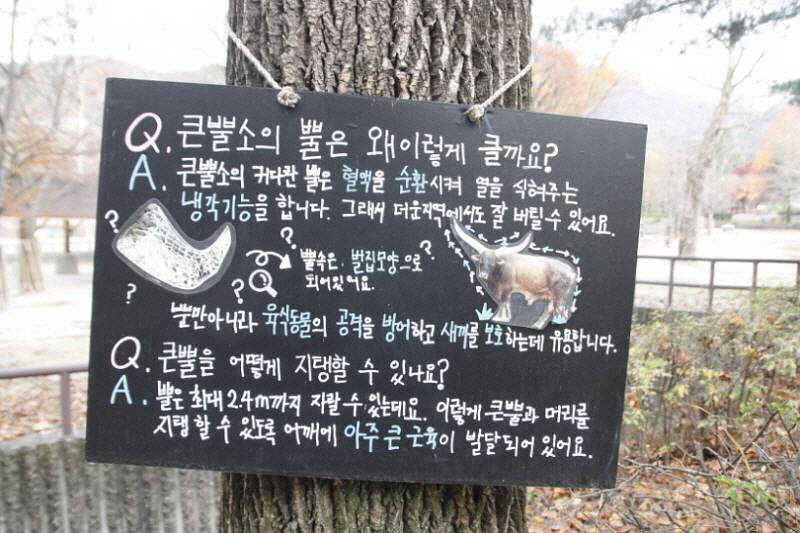 Q. 큰뿔소의 뿔은 왜 이렇게 클까요?
A. 큰뿔소의 커다란 뿔은 혈액을 순환시켜 열을 식혀주는
냉각기능을 합니다. 그래서 더운지역에서도 잘 버틸 수 있어요.
? ? ? ? ?
뿔속은 벌집모양으로
되어있어요.
뿐만아니라 육식동물의 공격을 방어하고 새끼를 보호하는데 유용합니다.
Q. 큰뿔을 어떻게 지탱할 수 있나요?
A. 뿔은 최대 2.4m까지 자랄 수 있는데요. 이렇게 큰뿔과 머리를
지탱 할 수 있도록 어깨에 아주 큰 근육이 발달되어 있어요.